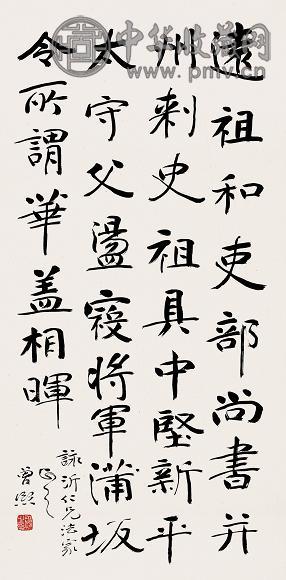 中华收藏网
www.pmv.cn
遠祖和吏部尚書并
州刺史祖具中堅新平
大守父盪寇將軍蒲坂
令所謂華蓋相暉
詠沂仁兄法家
正之
曾熙